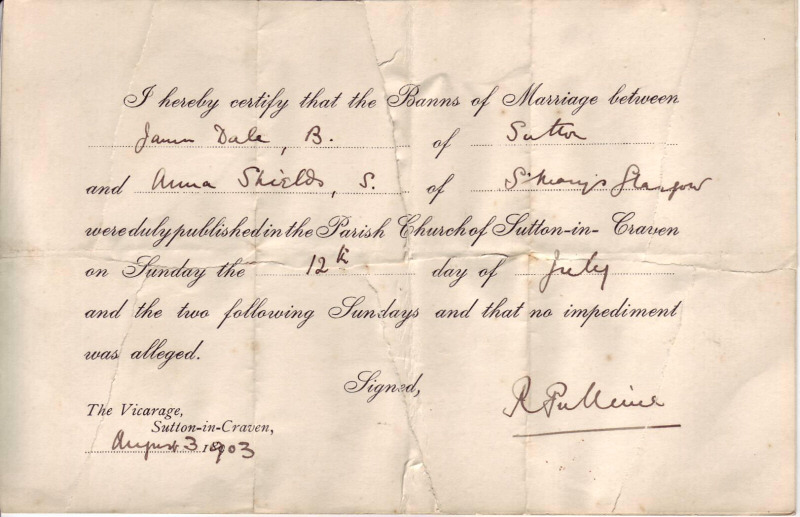 I hereby certify that the Banns of Marriage between
James Dale, B. of Sutton
and Anna Shields, S. of St Mary's Glasgow
were duly published in the Parish Church of Sutton-in-Craven
on Sunday the 12th day of July
and the two following Sundays and that no impediment
was alleged.
Signed,
R Pulleine
The Vicarage,
Sutton-in-Craven,
August 3 1903